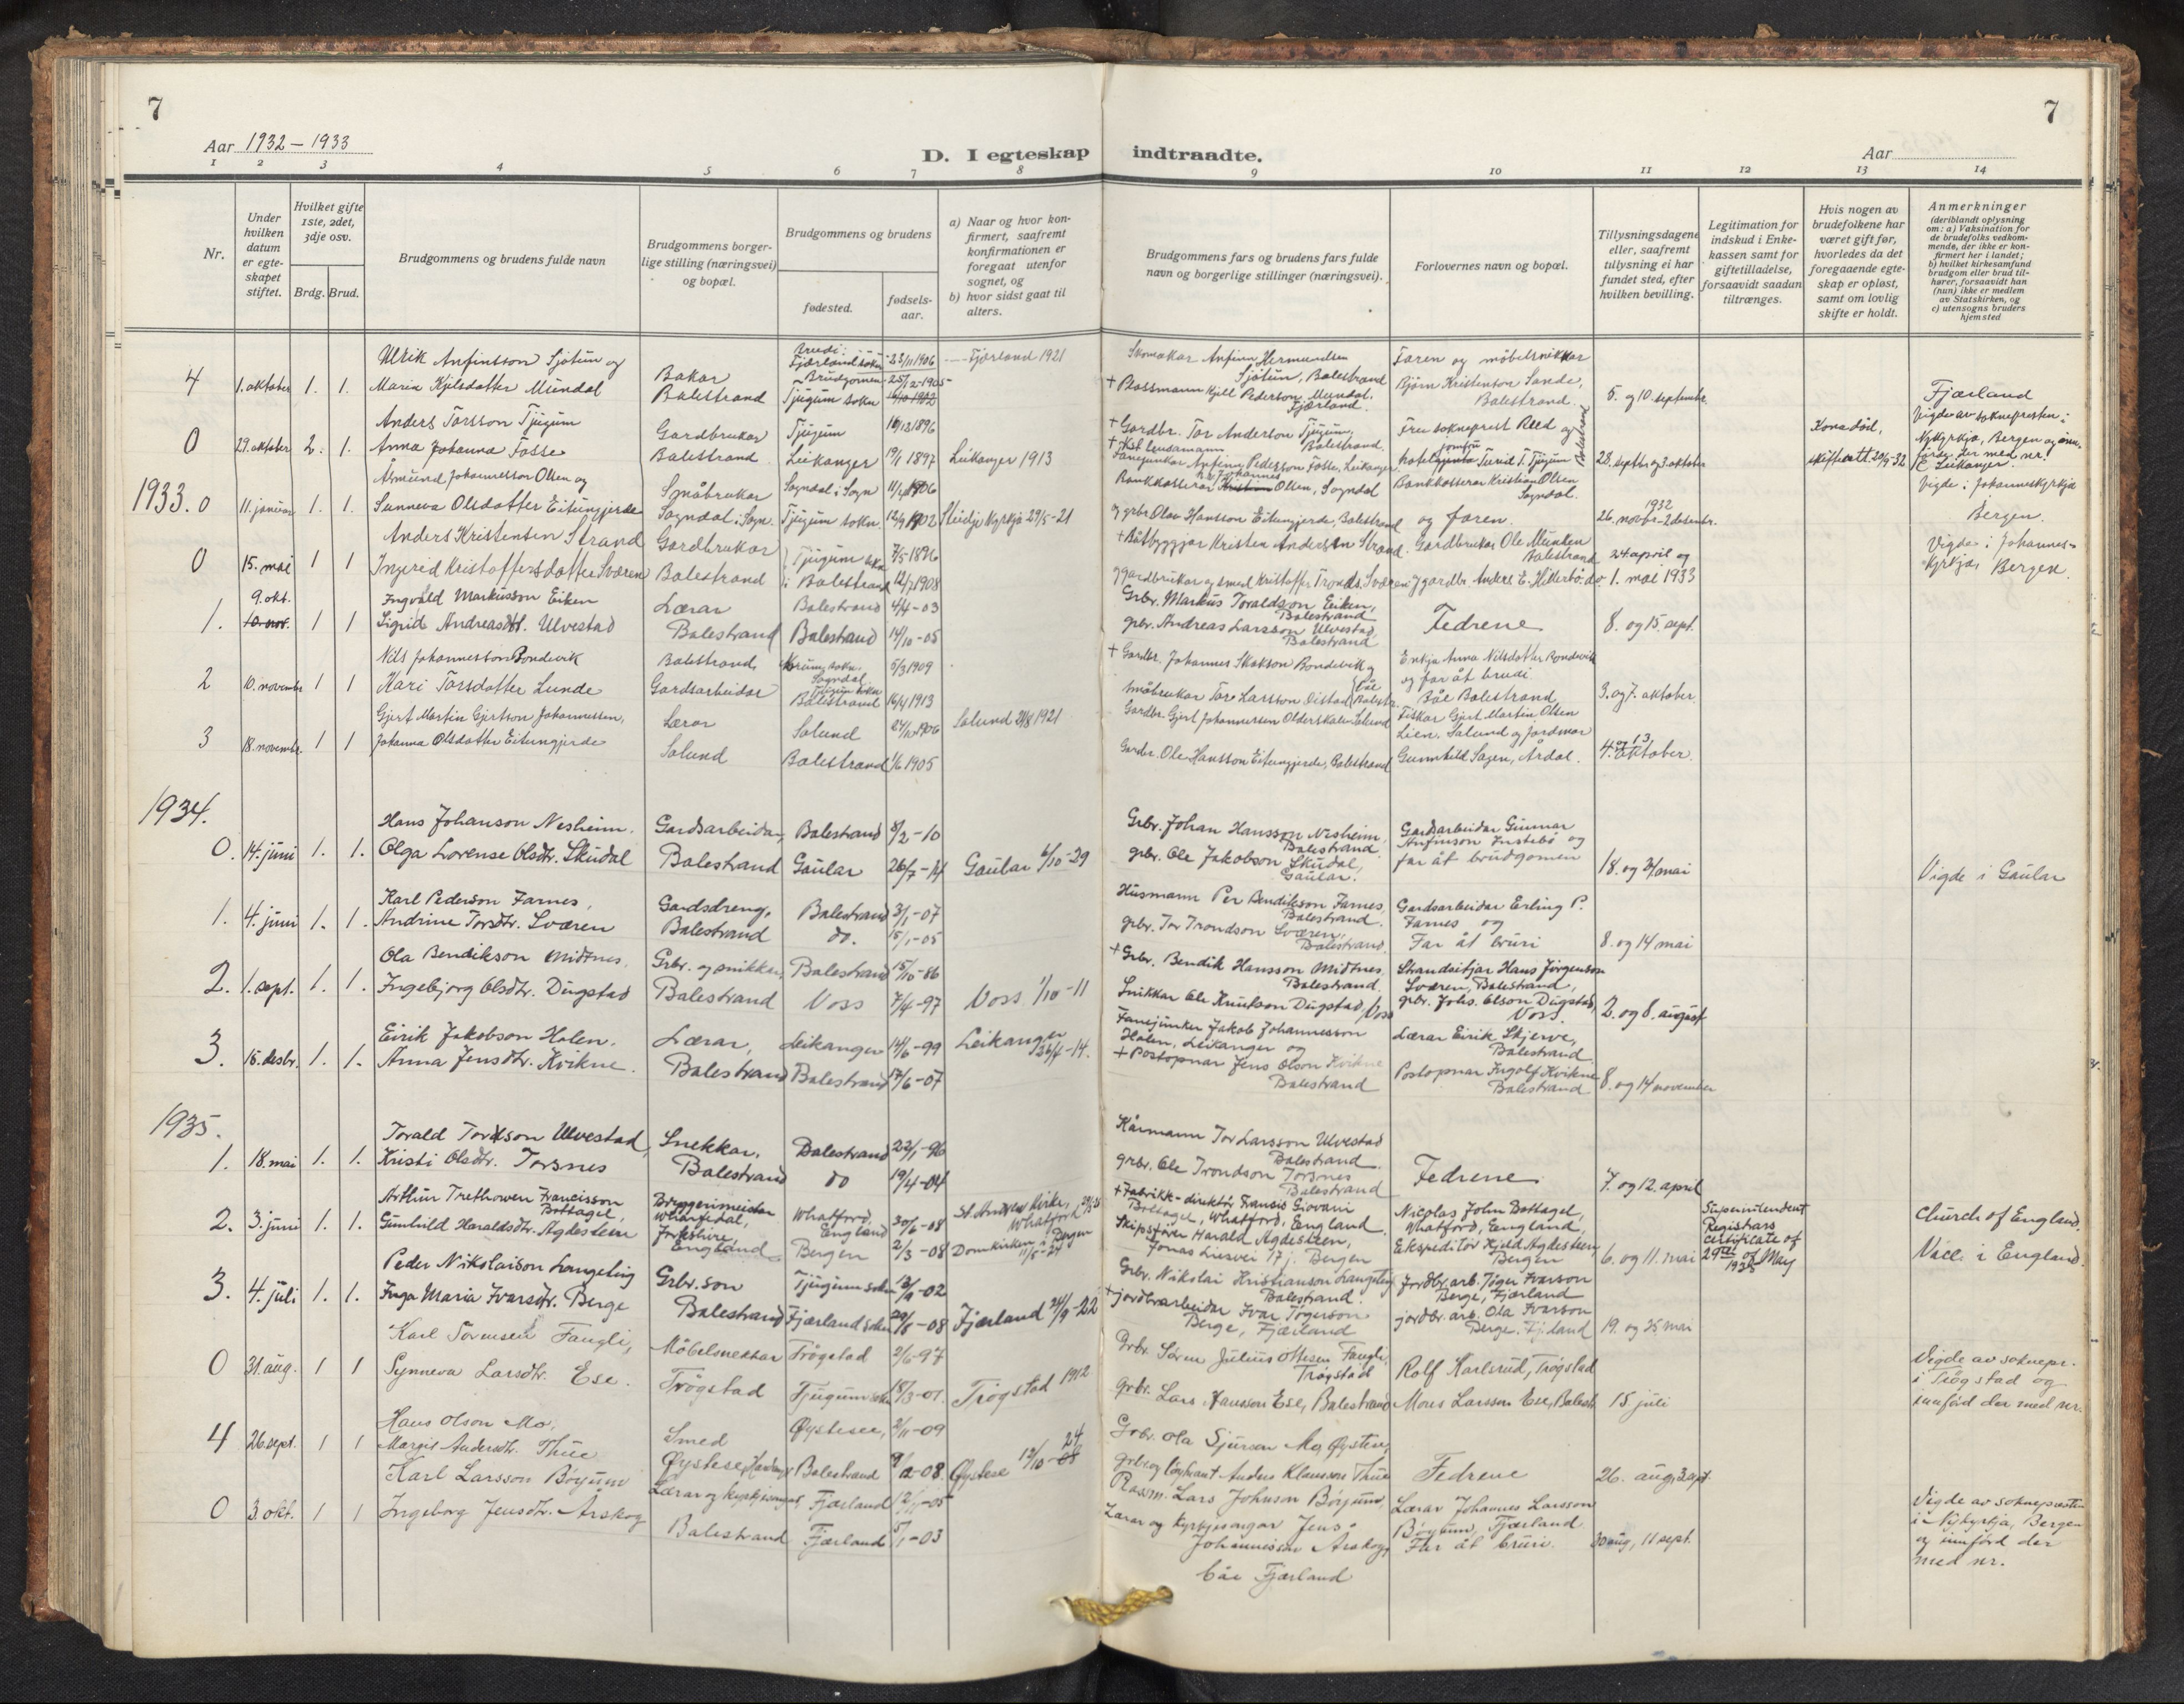 7
Aar 1932 – 1933
D. I egteskap indtraadte.
7
Aar
1 2 3 4 5 6 7 8 9 10 11 12 13 14
Nr.
Under hvilken datum er egte-skapet stiftet.
Hvilket gifte 1ste, 2det, 3dje osv.
Brdg. Brud.
Brudgommens og brudens fulde navn
Brudgommens borger-lige stilling (næringsvei) og bopæl.
Brudgommens og brudens
fødested.
fødsels-aar.
a) Naar og hvor kon-firmert, saafremt konfirmationen er foregaat utenfor sognet, og
b) hvor sidst gaat til alters.
Brudgommens fars og brudens fars fulde navn og borgerlige stillinger (næringsvei).
Forlovernes navn og bopæl.
Tillysningsdagene eller, saafremt tillysning ei har fundet sted, efter hvilken bevilling.
Legitimation for indskud i Enke-kassen samt for giftetilladelse, forsaavidt saadan tiltrænges.
Hvis nogen av brudefolkene har været gift før, hvorledes da det foregaaende egte-skap er opløst, samt om lovlig skifte er holdt.
Anmerkninger (deriblandt oplysning om: a) Vaksination for de brudefolks vedkom-mende, der ikke er kon-firmert her i landet; b) hvilket kirkesamfund brudgom eller brud til-hører, forsaavidt han (hun) ikke er medlem av Statskirken, og c) utensogns bruders hjemsted
4 1. oktober 1. 1. Ulrik Anfinsson Sjøtun og Bakar brudi: Fjærland sokn 23/11 1906 Fjærland 1921 Skomakar Anfinn Hermundsen Sjøtun, Balestrand Faren og møbelsnikkar
Maria Kjelsdotter Mundal Balestrand Brudgomen Tjugum sokn 25/12-1905 + Plassmann Kjell Pederson Mundal, Fjærland Bjørn Kristenson Sande, Balestrand 5. og 10. september Fjærland
0 29. oktober 2. 1. Anders Torsson Tjugum Gardbrukar Tjugum + Gardbr. Tor Anderson Tjugum, Balestrand Fru sokneprest Reed og Kona død, Vigde av soknepresten i
Anna Johanna Fosse Balestrand Leikanger 19/1 1897 Leikanger 1913 Anfinn Pederson Fosse, Leikanger Turid T. Tjugum Balestrand 28. septbr og 3. oktober skifteatt. 20/9-32 Nykyrkja, Bergen og inn-førd der med nr. Leikanger.
1933. 0 11. januar 1. 1. Åsmund Johannesson Olsen og Småbrukar Sogndal i Sogn 11/2 1906 Bankkasserar Johannes Olsen, Sogndal Bankkasserar Kristian Olsen Sogndal. 1932 Vigde i Johanneskyrkja
Sunneva Olsdotter Eitungjerde Sogndal i Sogn. Tjugum sokn. 12/9 1902 Stedje Kyrkja 29/5-21 og grbr. Olav Hansson Eitungjerde, Balestrand og faren. 26. novbr-2 desembr. Bergen.
0 15. mai 1 1 Anders Kristensen Strand Gardbrukar Tjugum sokn 7/5-1896 + Båtbyggjar Kristen Andersen Strand. Gardbrukar Ole Munken Balestrand 24. april og Vigde i Johannes-
Ingerid Kristoffersdotter Sværen Balestrand i Balestrand 12/7 1908 gardbrukar og smed Kristoffer Tronds. Sværen og gardbr. Anders E. do 1. mai 1933 kyrkja, Bergen.
1. 9. okt. 10. nov. 1 1 Ingvald Markusson Eiken Lærar Balestrand 4/4-03 Grbr. Markus Toraldson Eiken, Balestrand
Sigrid Andreasdtr. Ulvestad Balestrand Balestrand 14/10-05 grbr. Andreas Larsson Ulvestad, Balestrand Fedrene 8. og 15. sept.
2 10. novembr 1 1 Nils Johannesson Bondevik Balestrand, sokn. Sogndal 5/3 1909 + Gardbr. Johannes Bondevik og Enkja Anna Nilsdotter Bondevik
Kari Torsdotter Lunde Gardsarbeidar Tjugum sokn Balestrand 16/4 1913 Småbrukar Tor Larsson Balestr. og far åt brudi Båe Balestrand 3. og 7. oktober
3 18. novembr 1 1 Gjert Martin Gjertson Johannessen, Lærar Solund 24/10 1906 Solund 21/8 1921 Gardbr. Gjert Johannessen Olderskalen Solund Fiskar Gjert Martin Olsen
Johanna Olsdotter Eitungjerde Solund Balestrand 1/6 1905 Gardbr. Ole Hansson Eitungjerde, Balestrand Lien, Solund og jordmor Gunnhild Sagen, Årdal. 4. og 13. oktober
1934.
0. 14. juni 1. 1. Hans Johanson Nesheim. Gardsarbeidar, Balestrand 8/2-10 Grbr. Johan Hansson Nesheim, Balestrand Gardsarbeidar Gunnar
Olga Lorense Olsdtr. Skudal Balestrand Gaular 26/7-14 Gaular 6/10-29 grbr. Ole Jakobson Skudal, Gaular. Anfinson Instebø og far åt brudgomen 18. og 24 mai Vigde i Gaular
1. 4. juni 1. 1. Karl Pederson Farnes, Gardsdreng, Balestrand 3/1-07 Husmann Per Bendikson Farnes, Balestrand. Gardsarbeidar Erling P.
Andrine Torsdtr. Sværen Balestrand do. 15/1-05 grbr. Tor Trondson Sværen, Balestrand. Farnes og Far åt bruri 8. og 14 mai
2. 1. sept. 1. 1. Ola Bendikson Midtnes. Grbr. og snikkar, Balestrand 15/10-86 + Grbr. Bendik Hansson Midtnes, Balestrand. Strandsitjar Hans Jørgenson
Ingebjorg Olsdtr. Dugstad Balestrand Voss 7/4-97 Voss 1/10-11 Snikkar Ole Knutson Dugstad, Voss Sværen, Balestrand, grbr. Johs. Olson Dugstad, Voss. 2. og 8. august
3. 15. desbr. 1. 1. Eirik Jakobson Holen. Lærar, Leikanger 14/6-99 Leikanger 26/4-14. Fanejunker Jakob Johannesson Holen, Leikanger og Lærar Eirik Skjerve, Balestrand
Anna Jensdtr. Kvikne. Balestrand Balestrand 17/6-07 + Postopnar Jens Olson Kvikne Balestrand Postopnar Ingolf Kvikne Balestrand 8. og 14 november
1935.
1. 18. mai 1. 1. Torald Torson Ulvestad, Snekkar, Balestrand 22/1-96 Kårmann Tor Larsson Ulvestad Balestrand.
Kristi Olsdtr. Torsnes Balestrand do 19/4-04 grbr. Ole Trondson Torsnes Balestrand Fedrene 7. og 12. april
2. 3. juni 1. 1. Arthur Trethowen Francisson Bottagel, Bryggerimeister Wharfedal, Whatford, England 30/6-08 St. Andrew Kirke, Whatford + Fabrikk-direktør Francis Giovani Bottagel, Whatford, England Nicolas John Bottagel, Whatford, England, Superintendent Registrars Church of England.
Gunhild Haraldsdtr. Agdesteen Yorkshire, England Bergen 2/3-08 Domkirken i Bergen 11/5-24 Skipsfører Harald Agdesteen, Jonas Liesvei 17, Bergen Ekspeditør Kjeld Agdesteen Bergen 6. og 11. mai certificate of 29th of May 1935 Vacc. i England.
3. 4. juli 1. 1. Peder Nikolaison Langeteig Grbr. son Tjugum sokn 13/9-02 Grbr. Nikolai Kristianson Langeteig Balestrand. Jordbr. arb. Tøger Ivarson Berge, Fjærland
Inga Maria Ivarsdtr. Berge Balestrand Fjærland sokn 29/8-08 Fjærland 24/9-22 + jordbrarbeidar Ivar Tøgerson Berge, Fjærland jordbr. arb. Ola Ivarson Berge, Fj.land 19. og 25 mai
0 31. aug. 1 1 Karl Sørensen Faugli, Møbelsnekkar Trøgstad 2/6-97 Grbr. Søren Julius Ottesen Faugli, Trøgstad Rolf Karlsrud, Trøgstad Vigde av soknepr.
Synneva Larsdtr. Ese. Trøgstad Tjugum sokn 18/3-01. Trøgstad 1912. Grbr. Lars Hansson Ese, Balestrand Mons Larsson Ese, Balestr. 15. juli i Trøgstad og innførd der med nr.
4 26. sept. 1 1 Hans Olson Mo, Smed Øystese, 2/11-09 Grbr. Ola Sjursen Mo, Øystese,
Margit Andersdtr. Thue Øystese, Hardanger Balestrand 9/12-08. Øystese 12/10-24 Anders Klausson Thue Fedrene 26. aug, 3. sept.
0 3. okt. 1 1 Karl Larsson Bøyum Lærar og kyrkjesongar Fjærland 12/11-05 Plassm. Lars Johnson Bøyum, Lærar Johannes Larsson Vigde av soknepresten
Ingeborg Jensdtr. Årskog Balestrand Fjærland 5/1-03 Lærar og kyrkjesongar Jens Johannesson Årskog, Båe Fjærland Bøyum, Fjærland Far åt bruri. 30 aug, 11 sept. i Nykyrkja, Bergen og innførd der med nr.